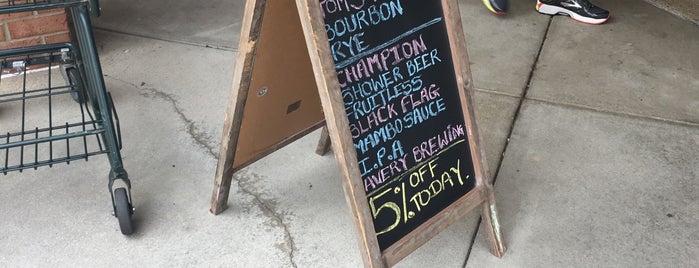 BOURBON
RYE
CHAMPION
SHOWER BEER
FRUITLESS
BLACK FLAG
MAMBO SAUCE
I.P.A
AVERY BREWING
5% OFF
TODAY.